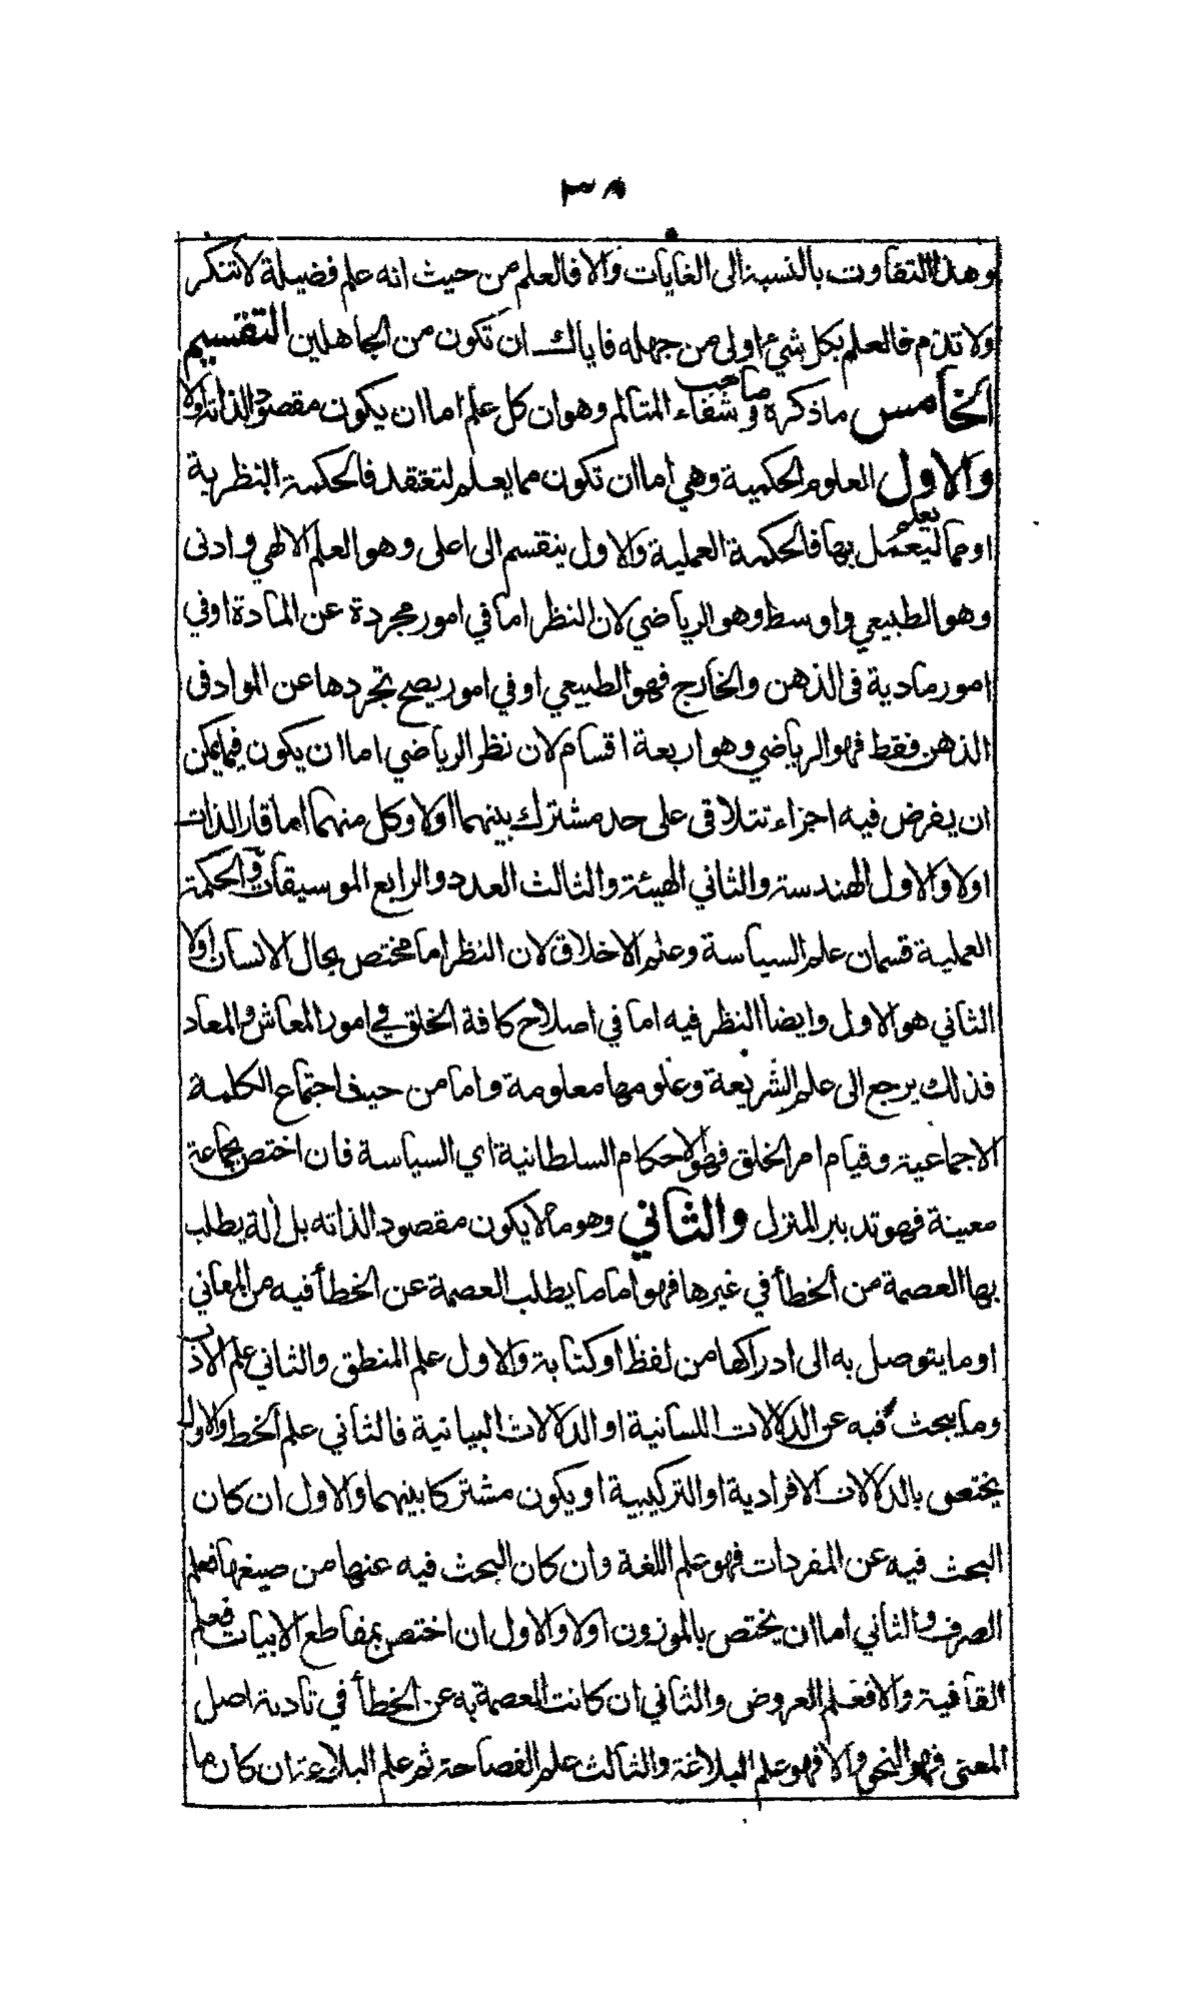 ٣٨
وهذا التفاوت بالنسبة الى الغايات والا فالعلم من حيث انه علم فضيلة لا تنكر
ولا تذم فالعلم بكل شيء اولى من جهله فاياك ان تكون من الجاهلين التقسيم
الخامس ما ذكره صاحب شفاء المتالم وهو ان كل علم اما ان يكون مقصودا لذاته اولا
والاول العلوم الحكمية وهي اما ان تكون مما يعلم لتعتقد فالحكمة النظرية
او مما يعلم ليعمل بها فالحكمة العملية والاول ينقسم الى اعلى وهو العلم الالهي وادنى
وهو الطبيعي واوسط وهو الرياضي لان النظر اما في امور مجردة عن المادة او في
امور مادية فى الذهن والخارج فهو الطبيعي او في امور يصح تجردها عن المواد فى
الذهن فقط فهو الرياضي وهو اربعة اقسام لان نظر الرياضي اما ان يكون فيما يمكن
ان يفرض فيه اجزاء تتلاقى على حد مشترك بينهما اولا وكل منهما اما قار الذات
اولا والاول الهندسة والثاني الهيئة والثالث العدد والرابع الموسيقات والحكمة
العملية قسمان علم السياسة وعلم الاخلاق لان النظر اما مختص بحال الانسان اولا
الثاني هو الاول وايضا النظر فيه اما في اصلاح كافة الخلق في امور المعاش والمعاد
فذلك يرجع الى علم الشريعة وعلومها معلومة واما من حيث اجتماع الكلمة
الاجماعية وقيام امر الخلق فهو الاحكام السلطانية اي السياسة فان اختص بجماعة
معينة فهو تدبير المنزل والثاني وهو ما لا يكون مقصودا لذاته بل آلة يطلب
بها العصمة من الخطأ في غيرها فهو اما ما يطلب العصمة عن الخطأ فيه من المعاني
او ما يتوصل به الى ادراكها من لفظ او كتابة والاول علم المنطق والثاني علم الادب
وما يبحث فيه عن الدلالات اللسانية او الدلالات البيانية فالثاني علم الخط والاول
يختص بالدلالات الافرادية او التركيبية او يكون مشتركا بينهما والاول ان كان
البحث فيه عن المفردات فهو علم اللغة وان كان البحث فيه عنها من صيغها فعلم
الصرف والثاني اما ان يختص بالموزون اولا والاول ان اختص بمقاطع الابيات فعلم
القافية والا فعلم العروض والثاني ان كانت العصمة به عن الخطأ في تادية اصل
المعنى فهو النحو والا فهو علم البلاغة والثالث علم الفصاحة ثم علم البلاغة ان كان ما